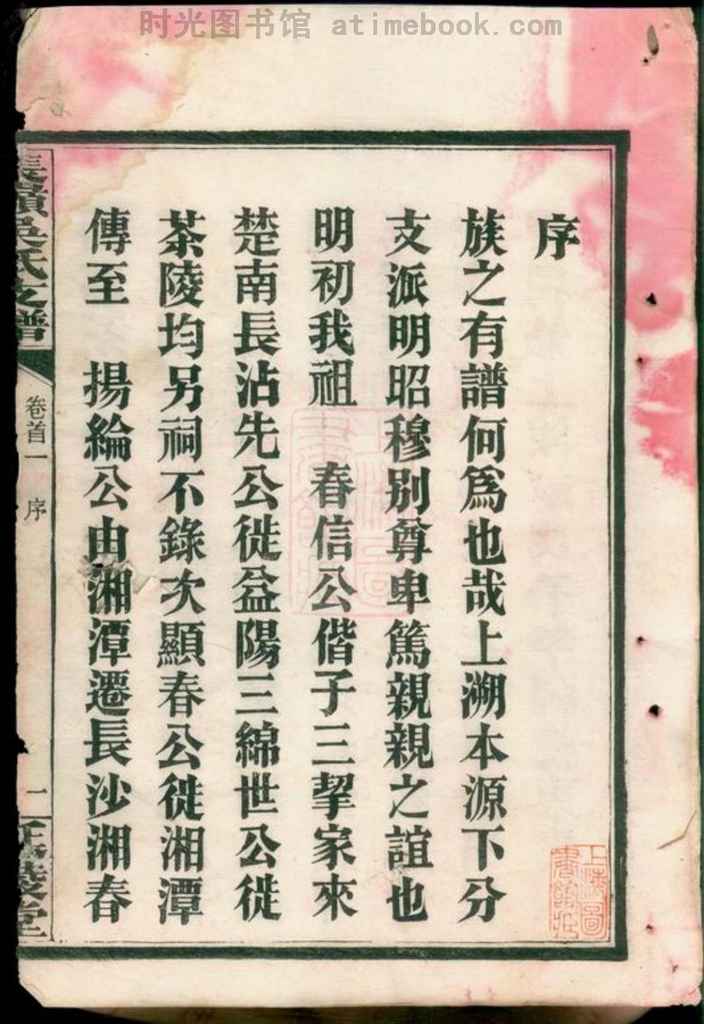 时光图书馆 @ atimebook.com
序
族之有譜何爲也哉上溯本源下分
支派明昭穆别尊卑篤親親之誼也
明初我祖　春信公偕子三挈家來
楚南長沾先公徙益陽三綿世公徙
茶陵均另祠不錄次顯春公徙湘潭
傳至　揚綸公由湘潭遷長沙湘春
吳氏支譜
卷首一　序
一
堂
上海圖
書館藏